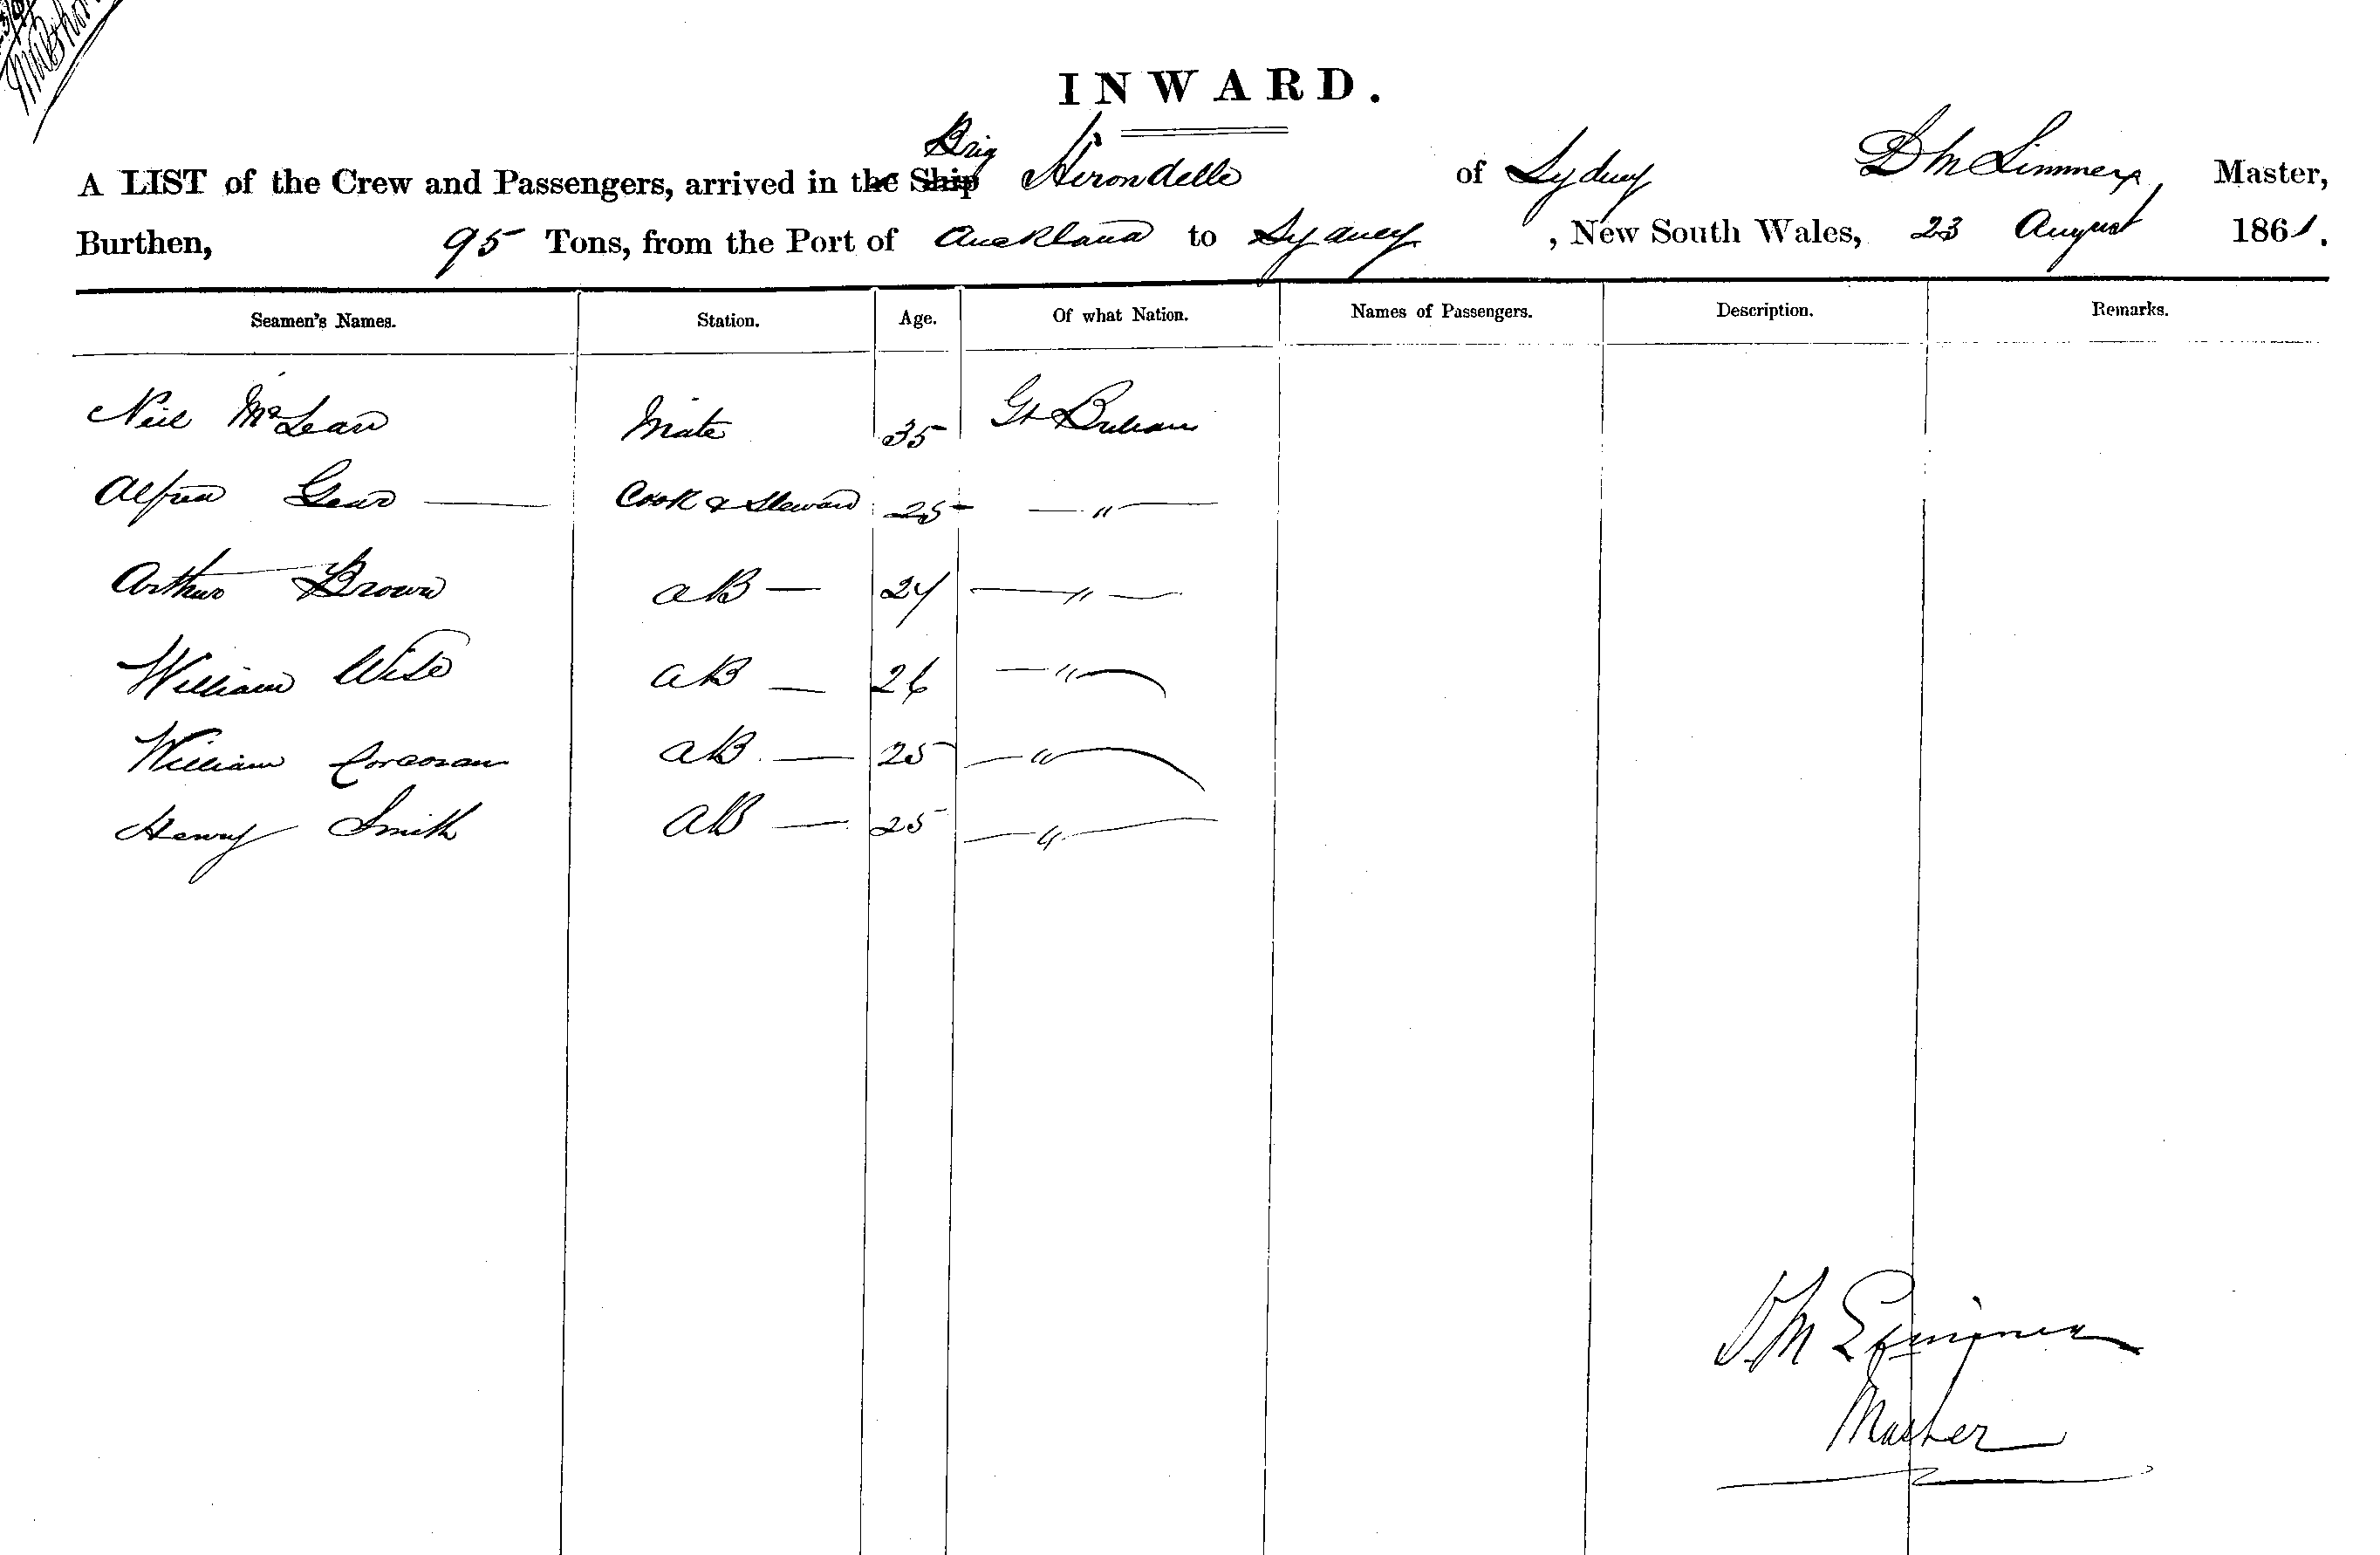 INWARD.
Brig
A LIST of the Crew and Passengers, arrived in the Ship Hirondelle of Sydney D M Limmex, Master,
Burthen, 95 Tons, from the Port of Auckland to Sydney, New South Wales, 23 August 1861.
Seamen's Names. Station. Age. Of what Nation. Names of Passengers. Description. Remarks.
Neil McLean Mate 35 Gt Britain
Alfred Cook & Steward 25 — " —
Arthur Brown AB — 24 — " —
William Wise AB — 26 — " —
William Corcoran AB — 25 — " —
Henry Smith AB — 25 — " —
D M
Master